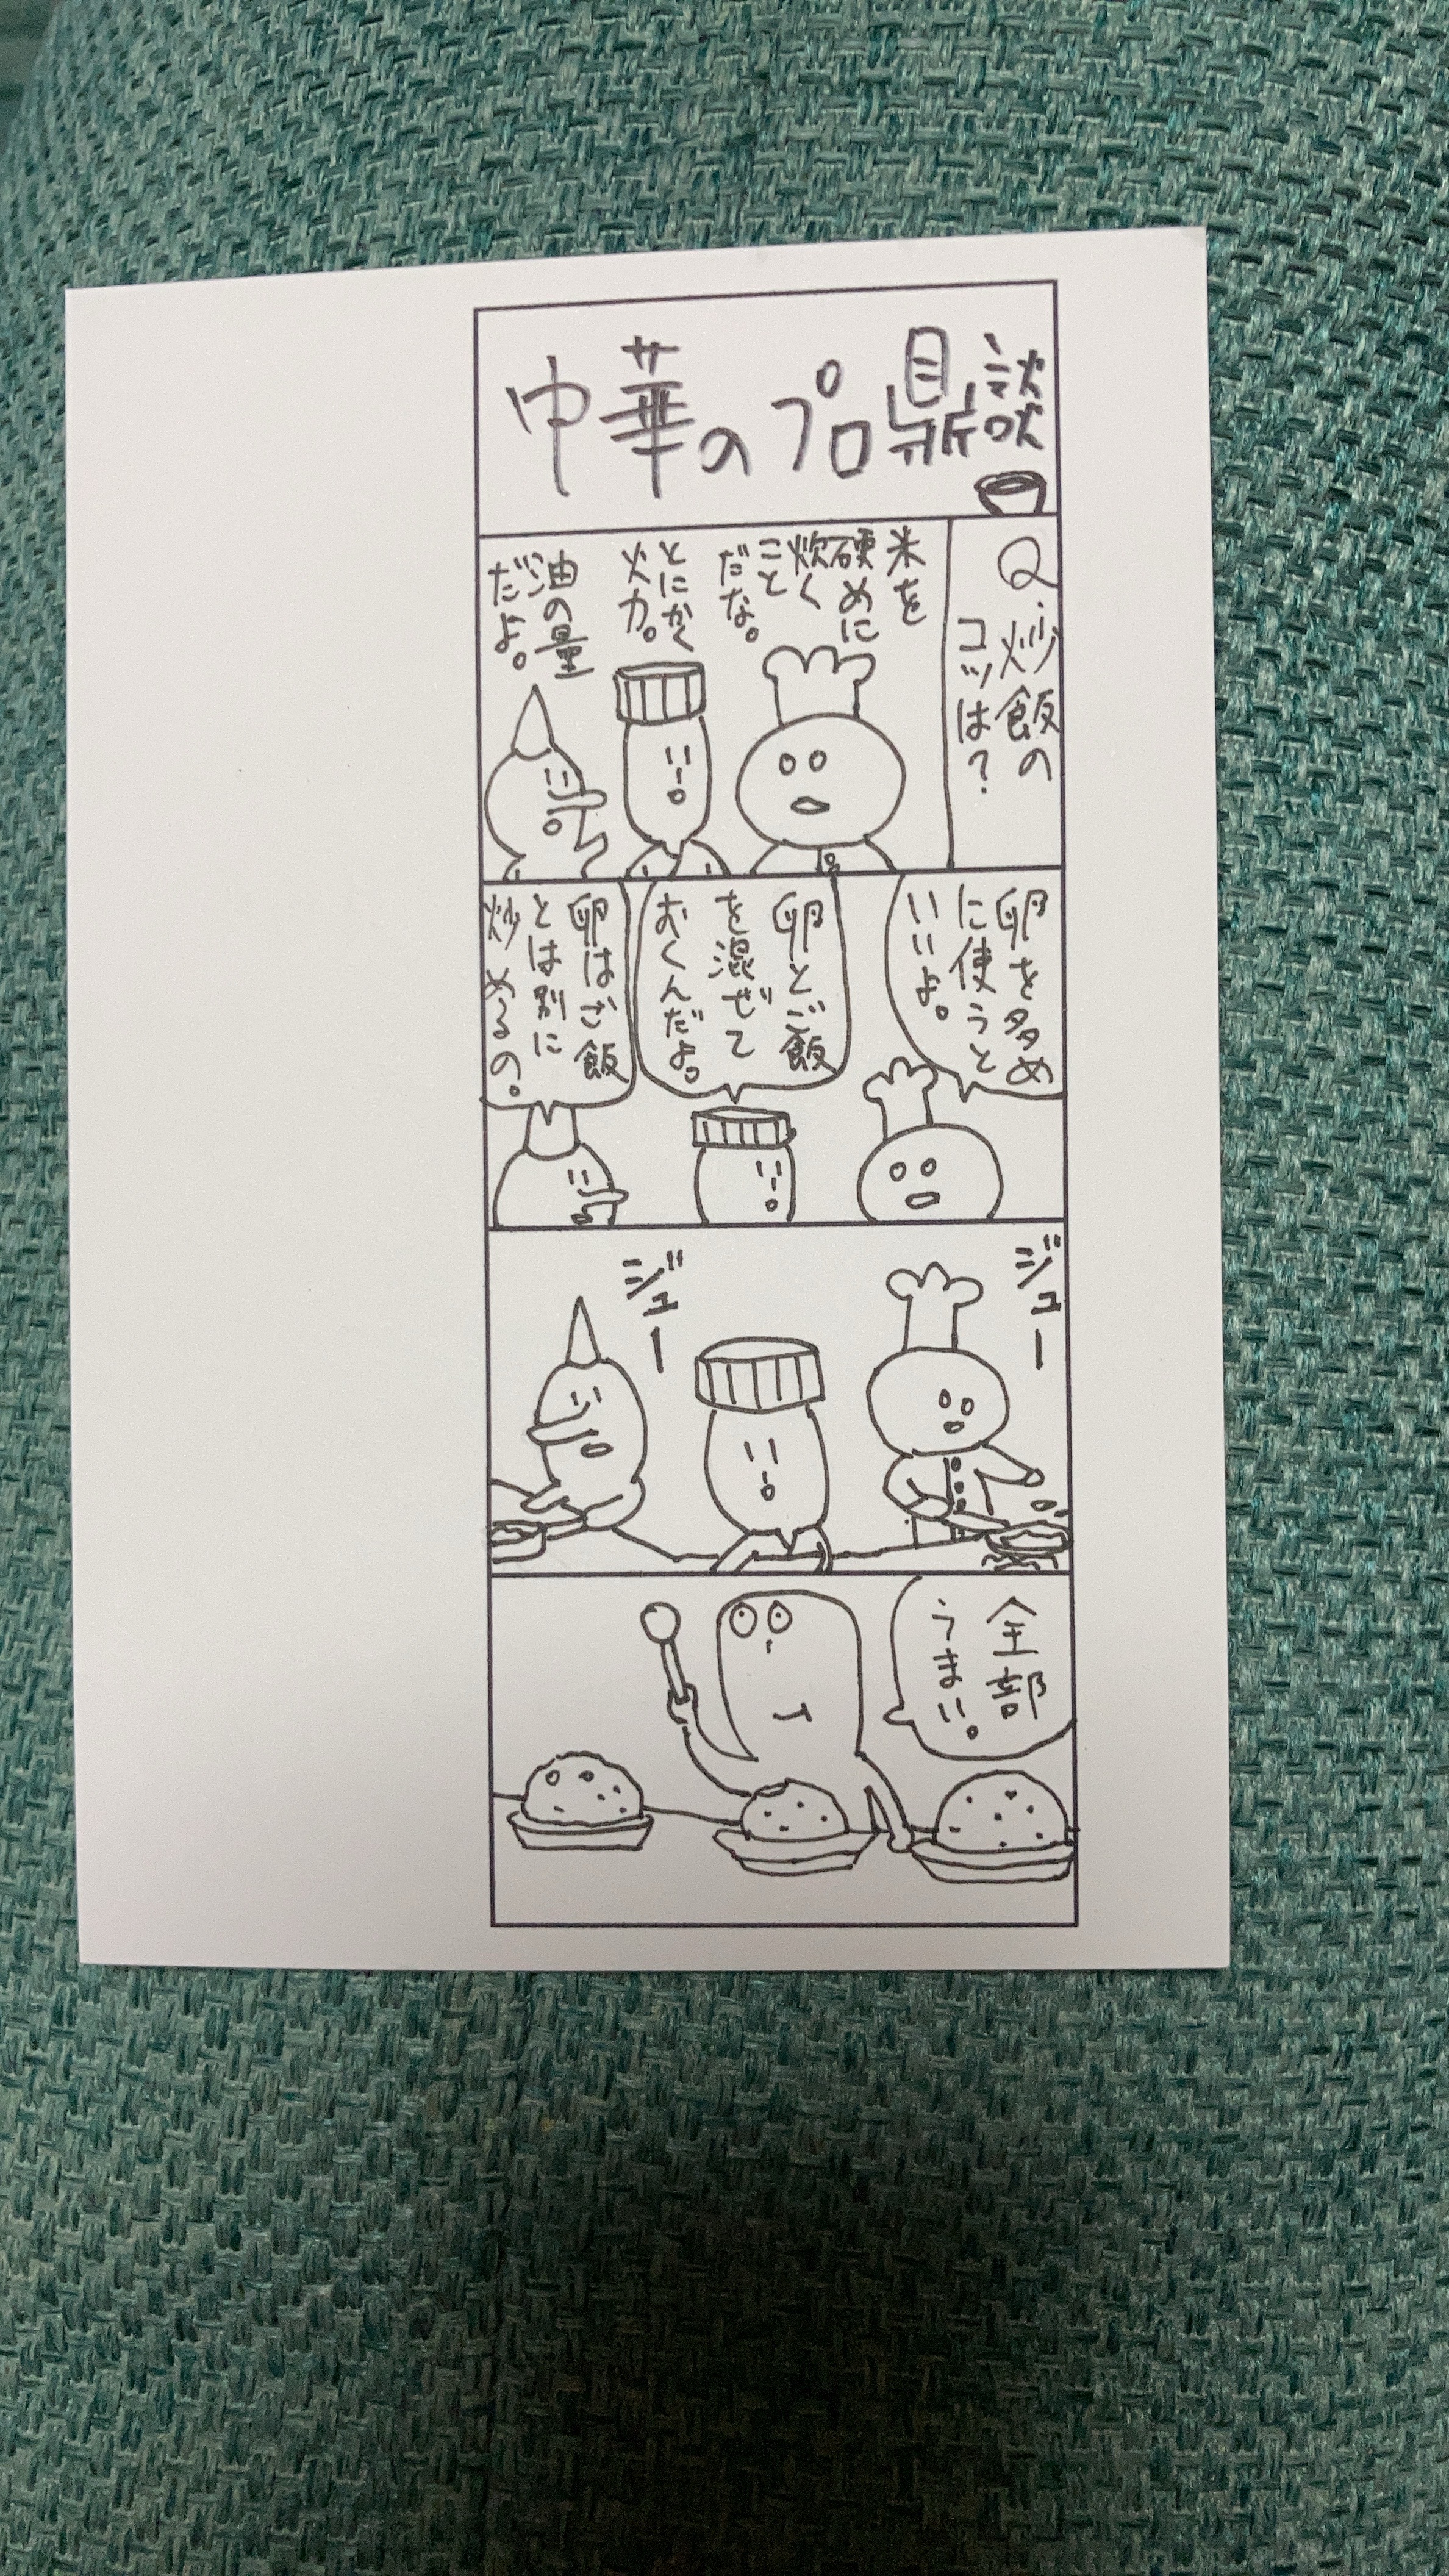 中華のプロ鼎談
Q.炒飯の
コツは?
米を
硬めに
炊く
こと
だな。
とにかく
火力。
油の量
だよ。
卵を多め
に使うと
いいよ。
卵とご飯
を混ぜて
おくんだよ。
卵はご飯
とは別に
炒めるの。
ジュー
ジュー
全部
うまい。